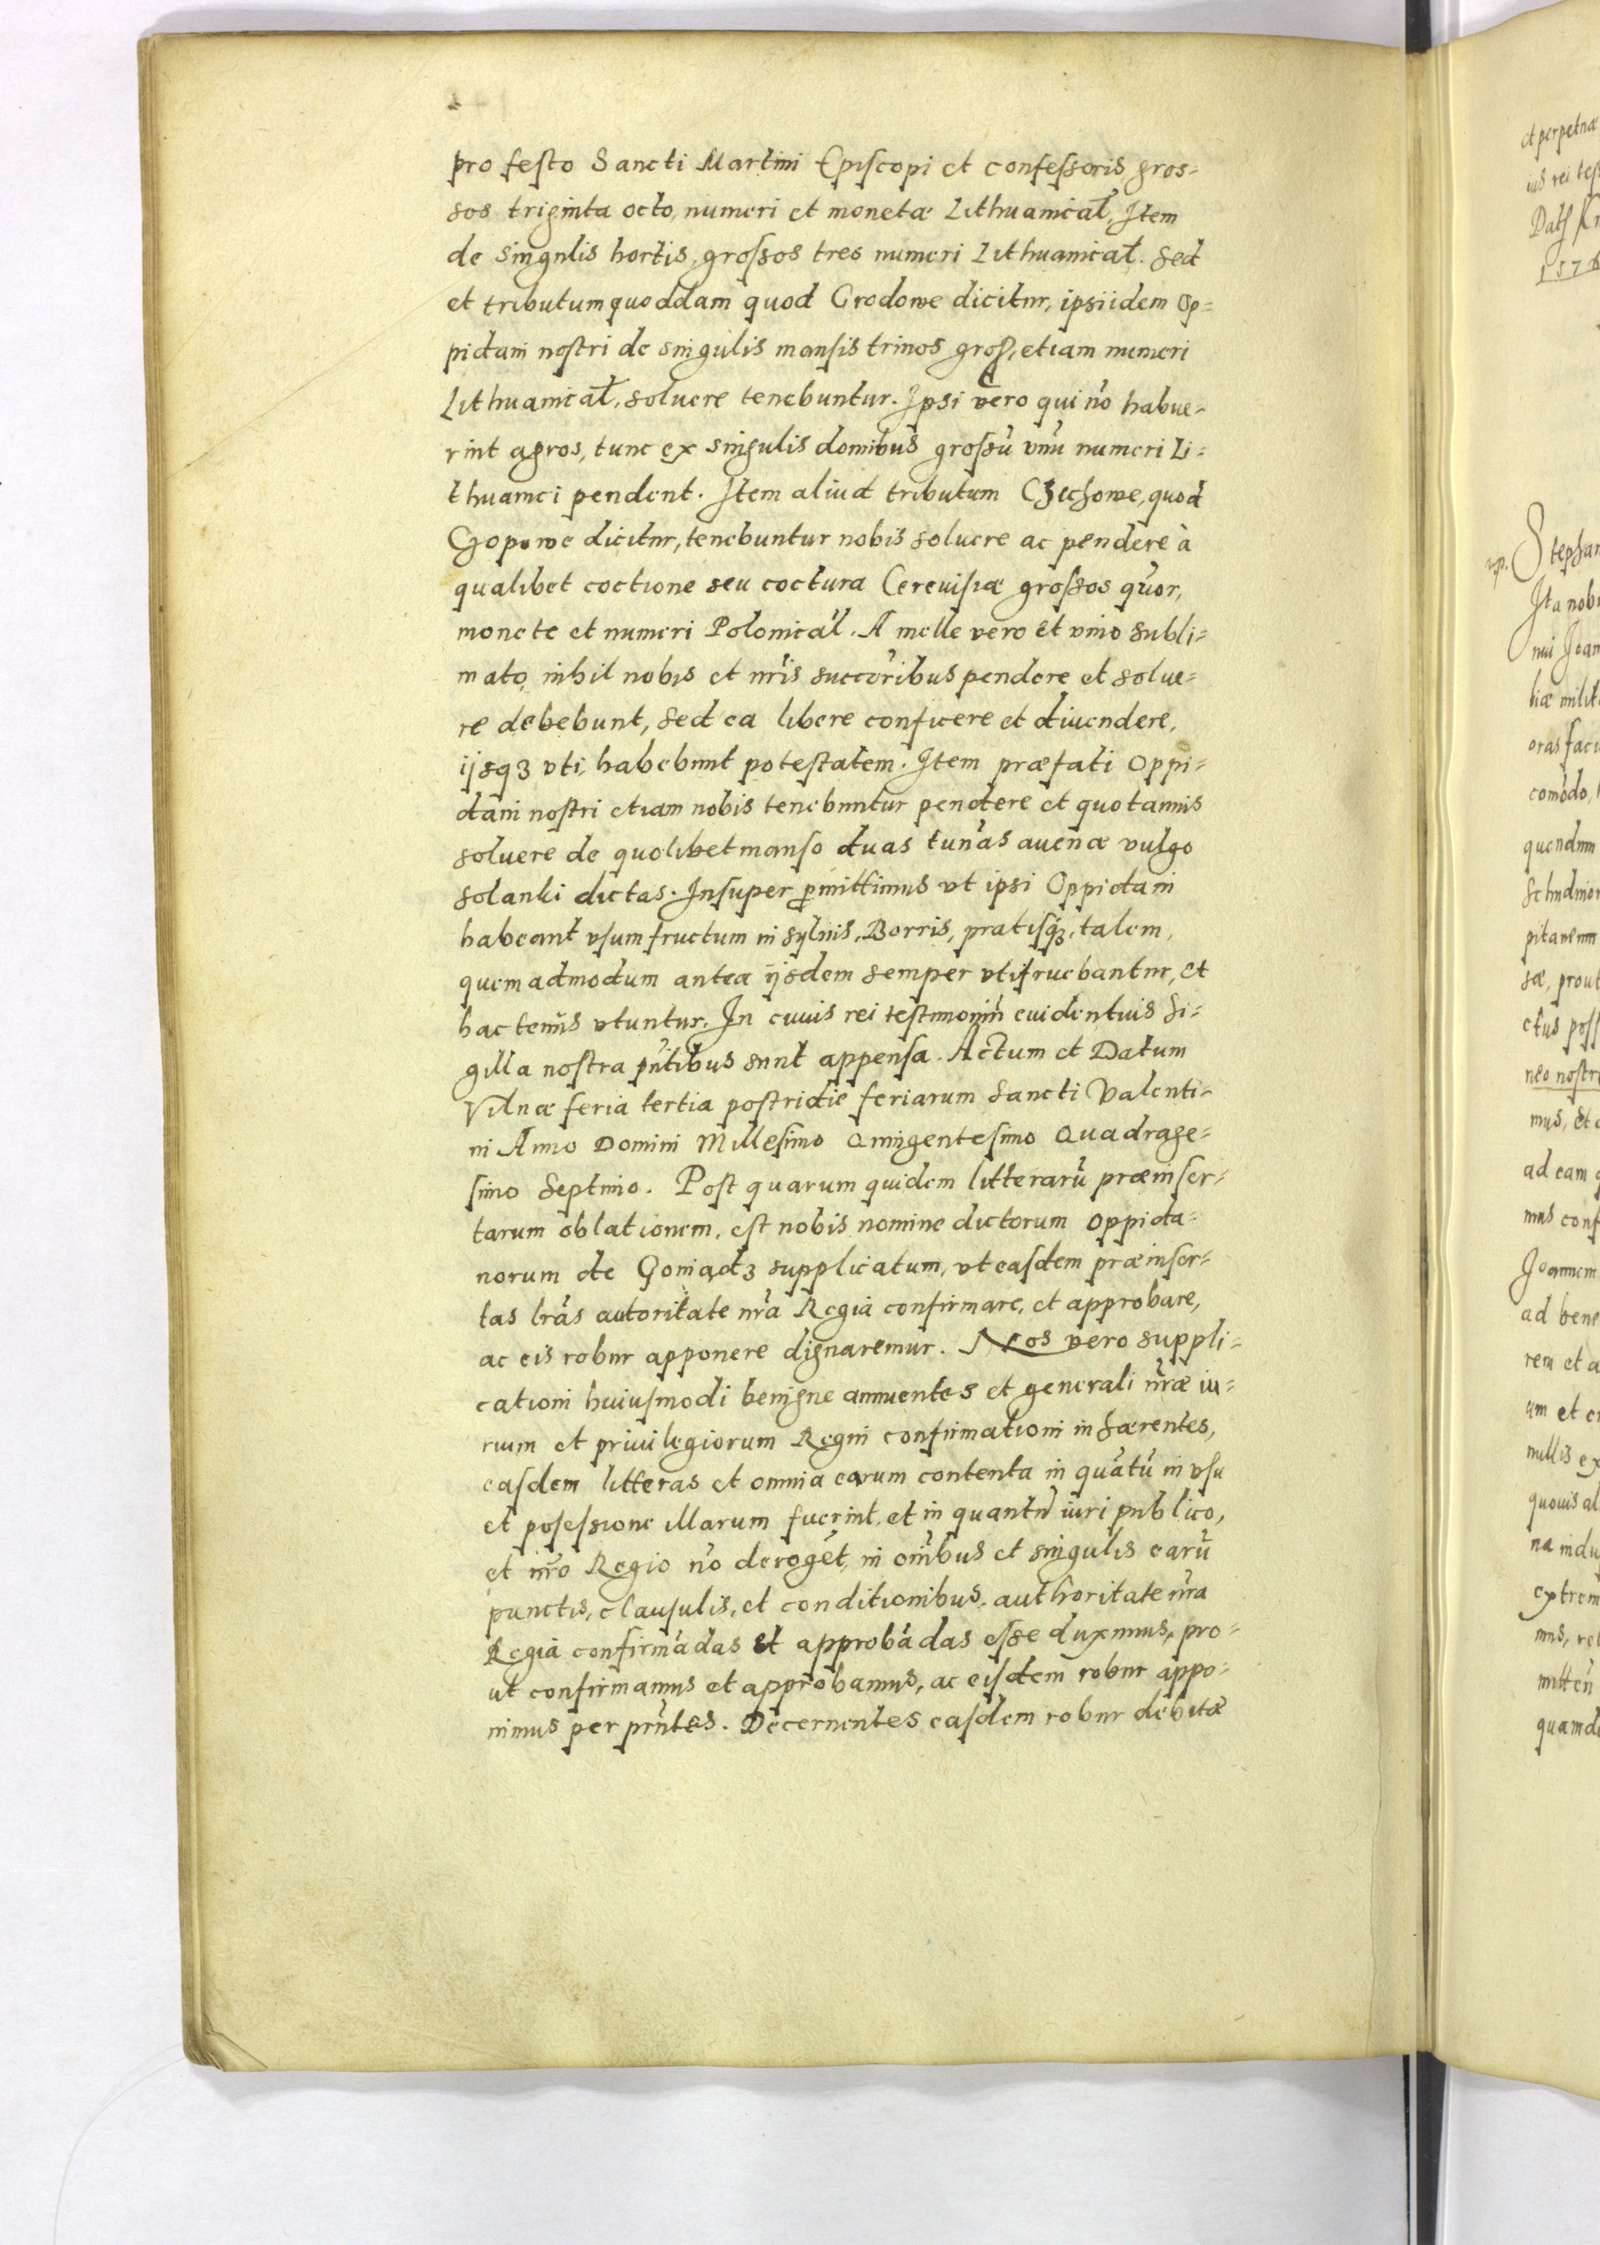 pro festo Sancti Martini Episcopi et confessoris gros=
sos triginta octo, numeri et monetæ Lithuanical, Item
de singulis hortis, grossos tres numeri Lithuanical. Sed
et tributum quoddam quod Grodowe dicitur, ipsi idem op=
pidani nostri de singulis mansis trinos gross, etiam numeri
Lithuanical, soluere tenebuntur. Ipsi vero qui nõ habue=
rint agros, tunc ex singulis domibus grossũ vnũ numeri Li=
thuanici pendent. Item aliud tributum Czichowe, quod
Czopowe dicitur, tenebuntur nobis soluere ac pendere à
qualibet coctione seu coctura Cereuisiæ grossos quõr,
monete et numeri Polonicãl. A melle vero et vino subli=
mato, nihil nobis et nr̃is succõribus pendere et solue=
re debebunt, sed ea libere conficere et diuendere,
ijsqꝫ vti, habebunt potestatem. Item præfati Oppi=
dani nostri etiam nobis tenebuntur pendere et quotannis
soluere de quolibet manso duas tunãs auenæ vulgo
solanki dictas. Insuper ꝑmittimus vt ipsi Oppidani
habeant vsumfructum in syluis, Borris, pratisqꝫ, talem,
quemadmodum antea ijsdem semper vtifruebantur, et
hactenus vtuntur. In cuius rei testimoniũ euidentius Si=
gilla nostra pñtibus sunt appensa. Actum et Datum
Vilnæ feria tertia postridie feriarum Sancti Valenti=
ni Anno Domini Millesimo Quingentesimo Quadrage=
simo Septimo. Post quarum quidem litterarũ præinser=
tarum oblationem, est nobis nomine dictorum Oppida=
norum de Goniadz supplicatum, vt easdem præinser=
tas lr̃as autoritate nr̃a Regia confirmare, et approbare,
ac eis robur apponere dignaremur. Nos vero suppli=
cationi huiusmodi benigne annuentes et generali nr̃æ iu=
rium et priuilegiorum Regni confirmationi inhærentes,
easdem litteras et omnia earum contenta in quãtũ in vsu
et posessione illarum fuerint, et in quantũ iuri publico,
et nr̃o Regio nõ derogẽt, in om̃ibus et singulis earũ
punctis, clausulis, et conditionibus, authoritate nr̃a
Regia confirmãdas et approbãdas esse duximus, pro=
ut confirmamus et approbamus, ac eisdem robur appo=
nimus per prñtes. Decernentes easdem robur debitæ